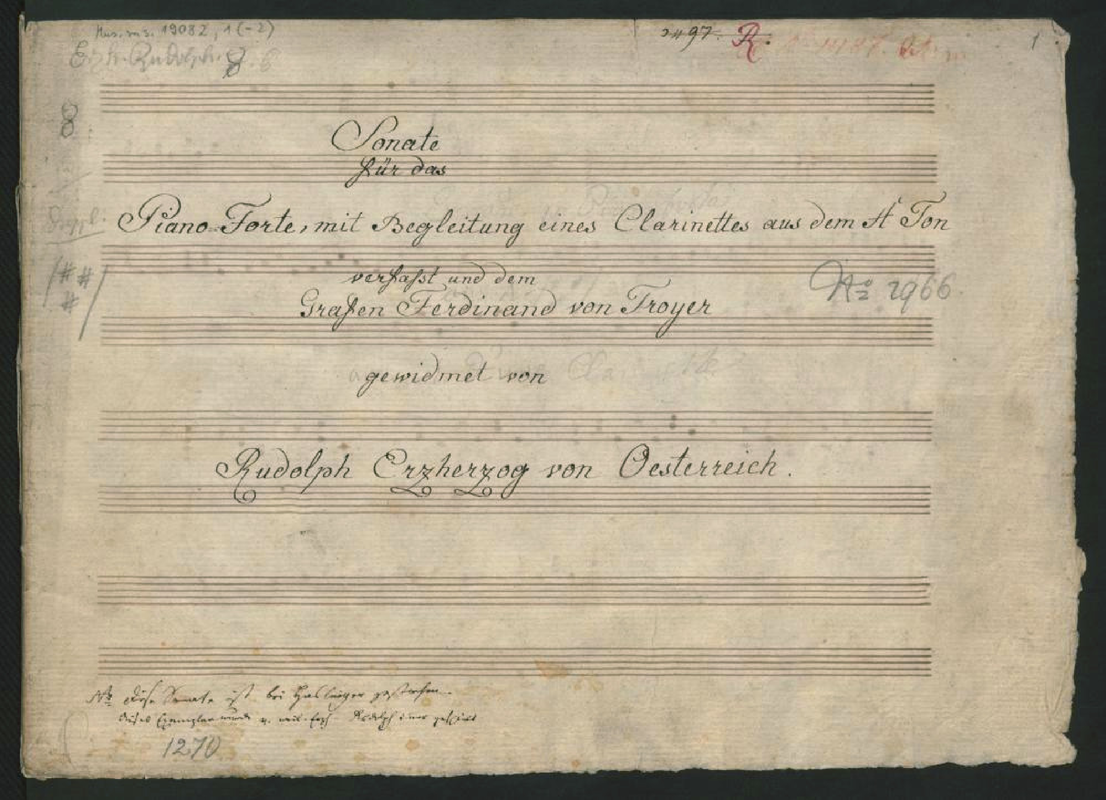 Mus. ms. 19082, 1 (-2)
Erzh. Rudolph. 8.
2497. R. 1
8
Sonate
für das
Piano-Forte, mit Begleitung eines Clarinettes aus dem A Ton
verfasst und dem
Grafen Ferdinand von Troyer
No 2966
###
gewidmet von
Rudolph Erzherzog von Oesterreich.
Nb diese Sonate ist bei Haslinger gestochen.
dieses Exemplar wurde v. Rudolph
1270